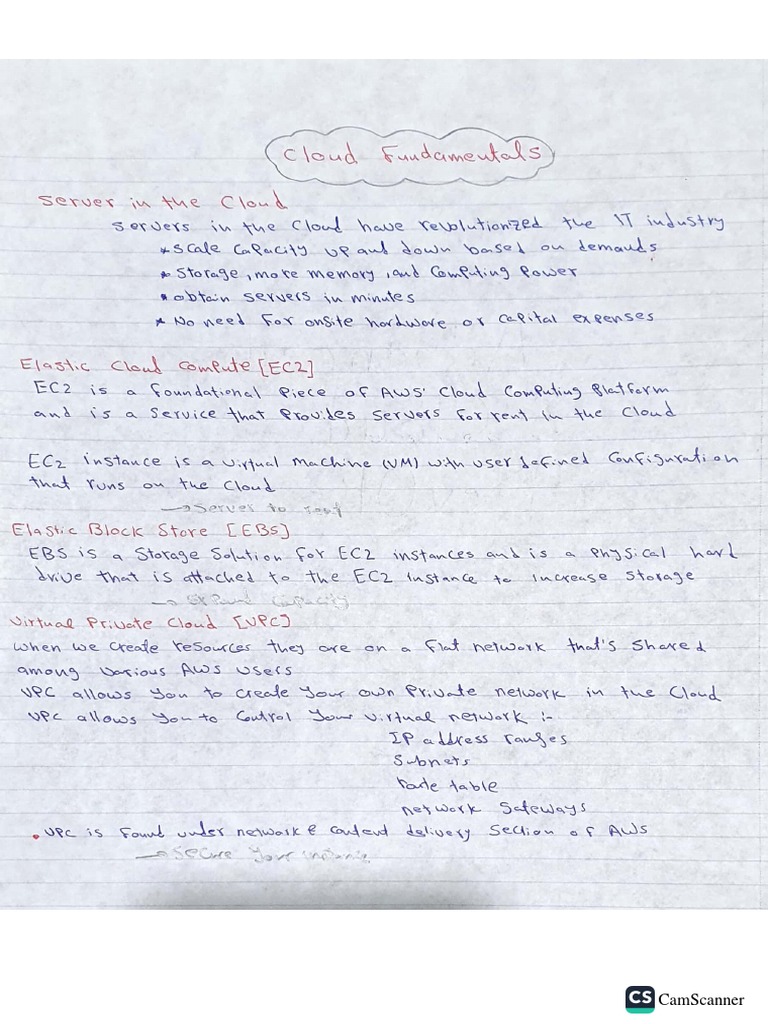 Cloud Fundamentals
Server in the Cloud
Servers in the Cloud have revolutionized the IT industry
* Scale Capacity up and down based on demands
* Storage, more memory, and Computing Power
* obtain servers in minutes
* No need for onsite hardware or capital expenses
Elastic Cloud Compute [EC2]
EC2 is a foundational Piece of AWS' Cloud Computing Platform
and is a service that Provides servers for rent in the Cloud
EC2 instance is a virtual machine (VM) with user defined Configuration
that runs on the Cloud
→ Server to rent
Elastic Block Store [EBS]
EBS is a Storage Solution for EC2 instances and is a Physical hard
drive that is attached to the EC2 instance to increase storage
→ expand capacity
Virtual Private Cloud [VPC]
when we create resources they are on a flat network that's shared
among various AWS users
VPC allows you to create your own Private network in the Cloud
VPC allows you to Control your virtual network :-
IP address ranges
Subnets
route table
network gateways
• VPC is found under network & content delivery Section of AWS
→ Secure your
CS CamScanner